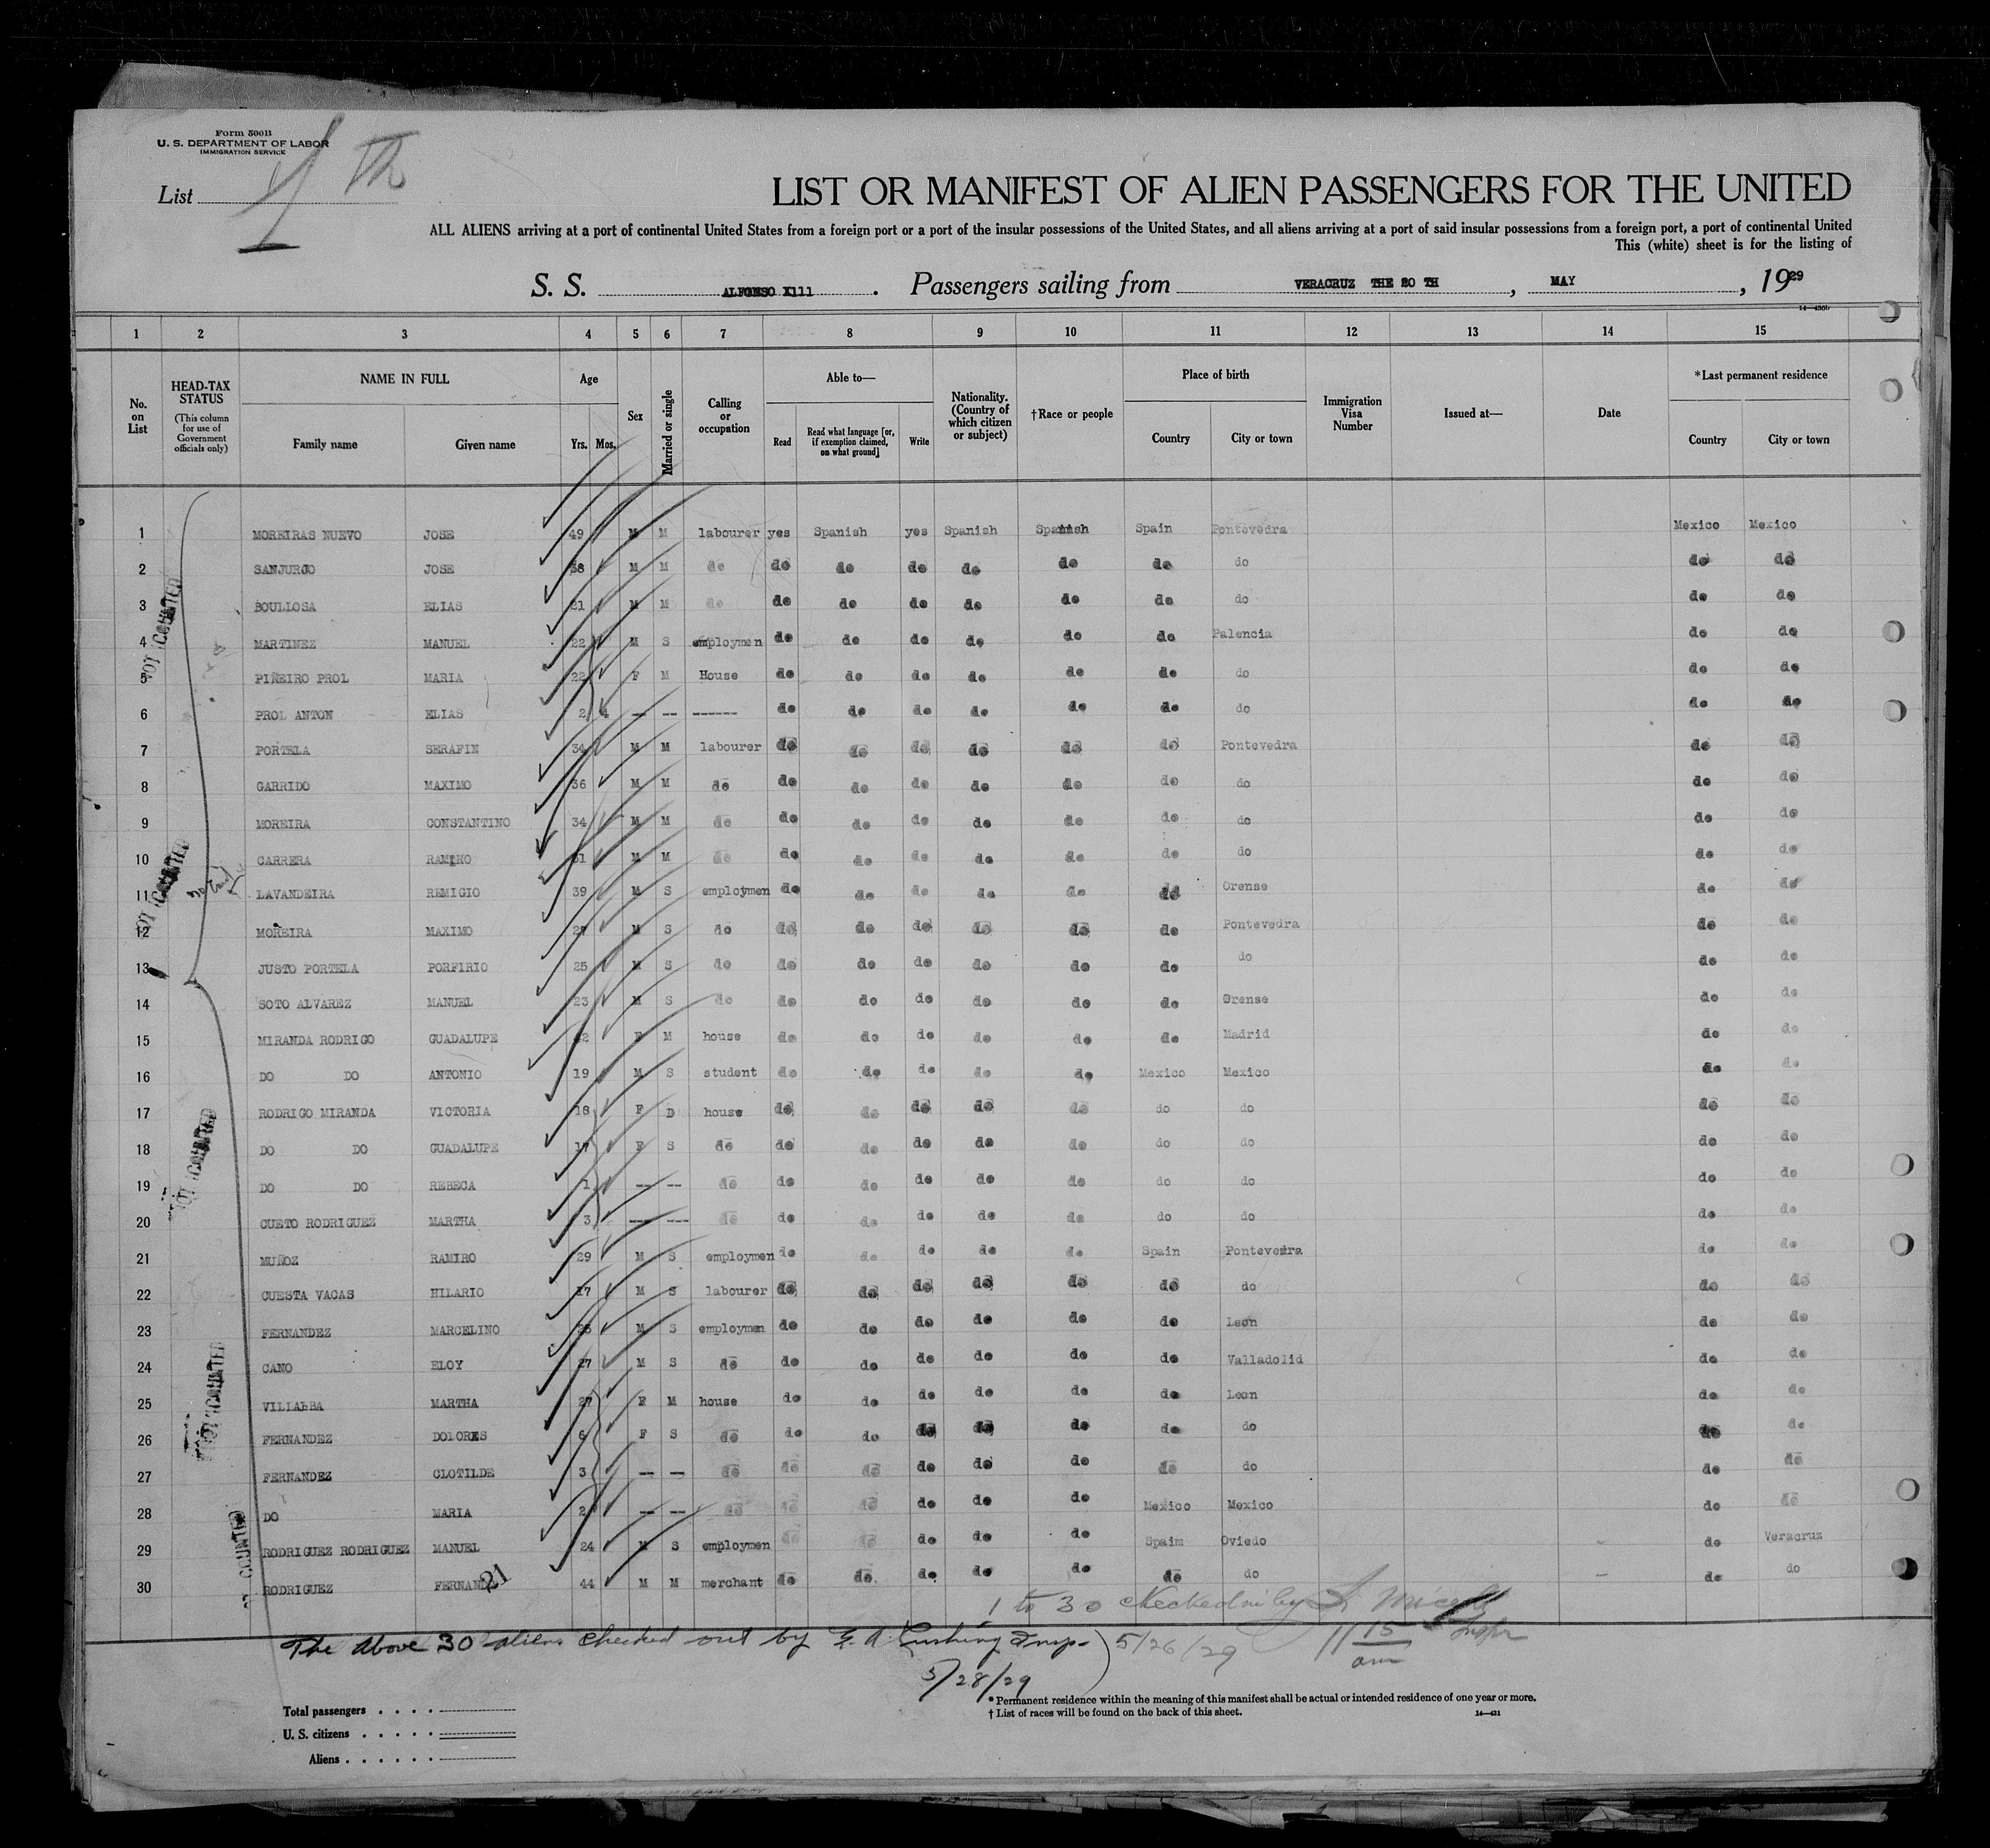 Form 500B
U. S. DEPARTMENT OF LABOR
IMMIGRATION SERVICE
List
LIST OR MANIFEST OF ALIEN PASSENGERS FOR THE UNITED
ALL ALIENS arriving at a port of continental United States from a foreign port or a port of the insular possessions of the United States, and all aliens arriving at a port of said insular possessions from a foreign port, a port of continental United
This (white) sheet is for the listing of
S. S. ALFONSO X111 . Passengers sailing from VERACRUZ THE 20 TH , MAY , 1929
1 2 3 4 5 6 7 8 9 10 11 12 13 14 15
No. on List
HEAD-TAX STATUS (This column for use of Government officials only)
NAME IN FULL Family name Given name
Age Yrs. Mos.
Sex
Married or single
Calling or occupation
Able to— Read Read what language [or, if exemption claimed, on what ground] Write
Nationality. (Country of which citizen or subject)
†Race or people
Place of birth Country City or town
Immigration Visa Number
Issued at—
Date
*Last permanent residence Country City or town
1 MOREIRAS NUEVO JOSE 49 M M labourer yes Spanish yes Spanish Spanish Spain Pontevedra Mexico Mexico
2 SANJURJO JOSE 38 M M do do do do do do do do do do
3 BOULLOSA ELIAS 21 M M do do do do do do do do do do
4 MARTINEZ MANUEL 22 M S employmen do do do do do do Palencia do do
5 PIÑEIRO PROL MARIA 22 F M House do do do do do do do do do
6 PROL ANTON ELIAS 2 4 -- -- ------ do do do do do do do do do
7 PORTELA SERAFIN 34 M M labourer do do do do do do Pontevedra do do
8 GARRIDO MAXIMO 36 M M do do do do do do do do do do
9 MOREIRA CONSTANTINO 34 M M do do do do do do do do do do
10 CARRERA RAMIRO 31 M M do do do do do do do do do do
11 LAVANDEIRA REMIGIO 39 M S employmen do do do do do do Orense do do
12 MOREIRA MAXIMO 27 M S do do do do do do do Pontevedra do do
13 JUSTO PORTELA PORFIRIO 25 M S do do do do do do do do do do
14 SOTO ALVAREZ MANUEL 23 M S do do do do do do do Orense do do
15 MIRANDA RODRIGO GUADALUPE 42 F M house do do do do do do Madrid do do
16 DO DO ANTONIO 19 M S student do do do do do Mexico Mexico do do
17 RODRIGO MIRANDA VICTORIA 18 F D house do do do do do do do do do
18 DO DO GUADALUPE 17 F S do do do do do do do do do do
19 DO DO REBECA 1 -- -- do do do do do do do do do do
20 CUETO RODRIGUEZ MARTHA 3 --- --- do do do do do do do do do do
21 MUÑOZ RAMIRO 29 M S employmen do do do do do Spain Pontevedra do do
22 CUESTA VACAS HILARIO 17 M S labourer do do do do do do do do do
23 FERNANDEZ MARCELINO M S employmen do do do do do do Leon do do
24 CANO ELOY 27 M S do do do do do do do Valladolid do do
25 VILLALBA MARTHA 27 F M house do do do do do do Leon do do
26 FERNANDEZ DOLORES 6 F S do do do do do do do do do do
27 FERNANDEZ CLOTILDE 3 -- -- do do do do do do do do do do
28 DO MARIA 2 -- -- do do do do do do Mexico Mexico do do
29 RODRIGUEZ RODRIGUEZ MANUEL 24 M S employmen do do do do do Spain Oviedo do Veracruz
30 RODRIGUEZ 44 M M merchant do do do do do do do do do
NOT COUNTED
NOT COUNTED
NOT COUNTED
NOT COUNTED
NOT COUNTED
21
1 to 30 checked in by
The above 30 aliens checked out by G. A. Cushing Insp. 5/26/29 11 15 am
5/28/29
* Permanent residence within the meaning of this manifest shall be actual or intended residence of one year or more.
† List of races will be found on the back of this sheet.
Total passengers
U. S. citizens
Aliens